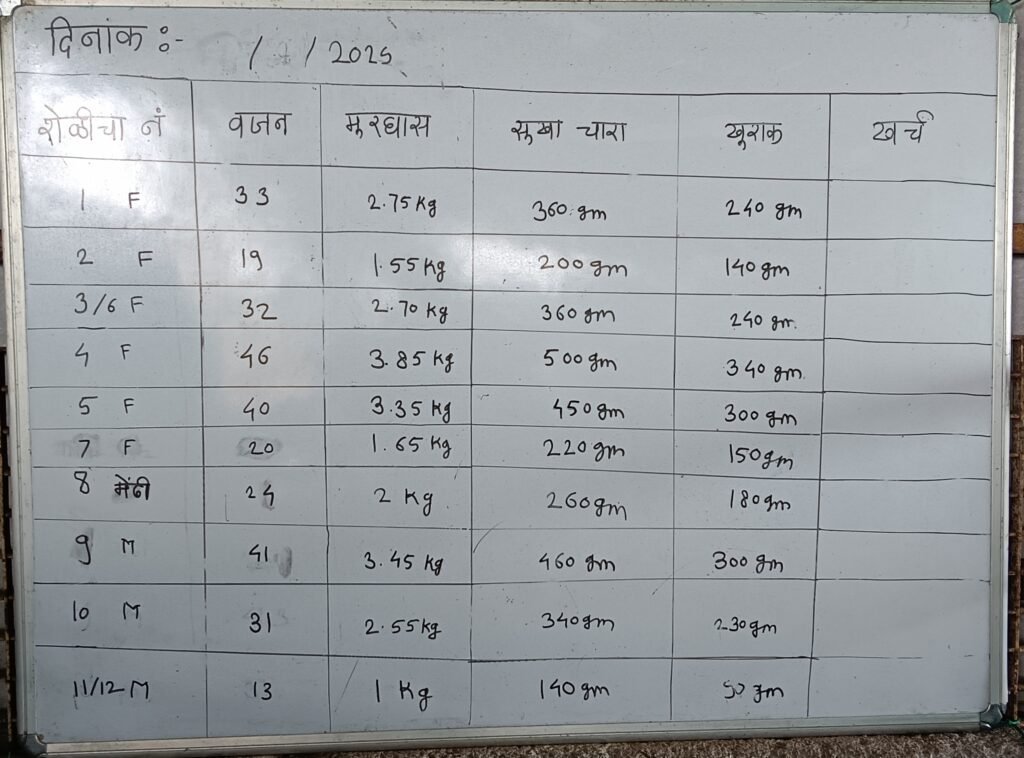 दिनांक :- / / 2025
शेळीचा नं वजन मूरघास सूखा चारा खूराक खर्च
1 F 33 2.75 Kg 360 gm 240 gm
2 F 19 1.55 Kg 200 gm 140 gm
3/6 F 32 2.70 Kg 360 gm 240 gm.
4 F 46 3.85 Kg 500 gm 340 gm.
5 F 40 3.35 Kg 450 gm 300 gm
7 F 20 1.65 Kg 220 gm 150 gm
8 मेंढी 24 2 Kg 260 gm 180 gm
9 M 41 3.45 Kg 460 gm 300 gm
10 M 31 2.55 Kg 340 gm 230 gm
11/12 M 13 1 Kg 140 gm gm